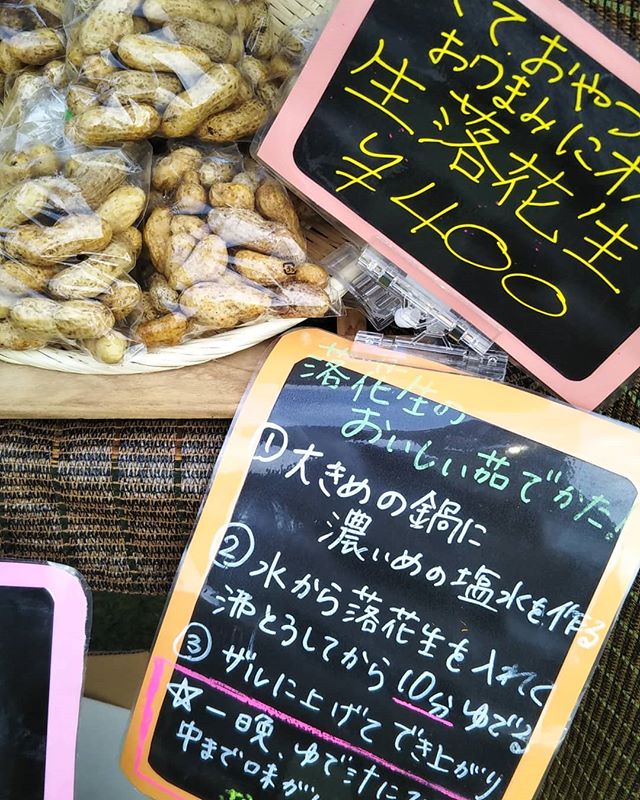 て、おやつ
おつまみに
生落花生
¥400
落花生の
おいしい茹でかた!
① 大きめの鍋に
濃いめの塩水を作る
② 水から落花生を入れて
沸とうしてから10分ゆでる
③ ザルに上げてでき上がり
☆一晩、ゆで汁に
中まで味が